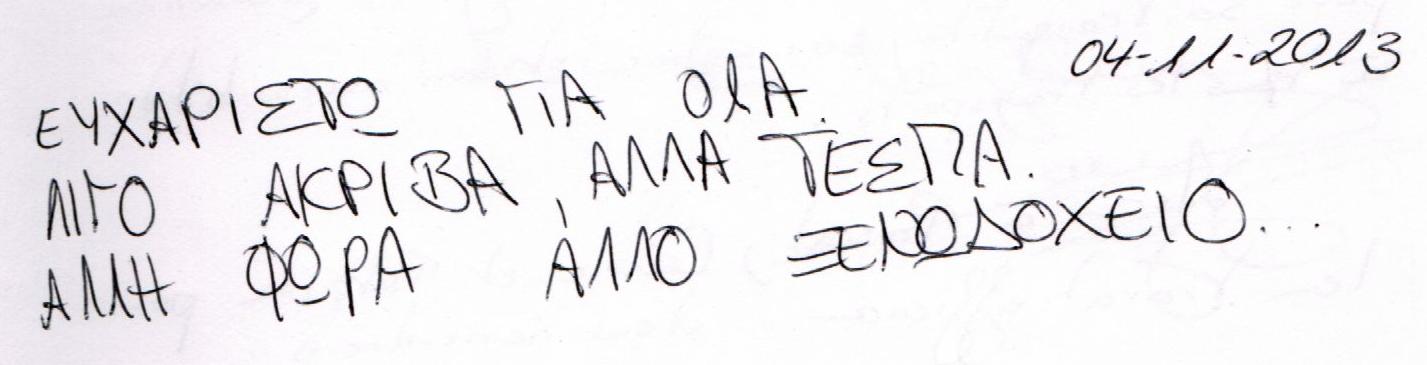 04-11-2013
ΕΥΧΑΡΙΣΤΩ ΓΙΑ ΟΛΑ.
ΛΙΓΟ ΑΚΡΙΒΑ, ΑΛΛΑ ΤΕΣΠΑ.
ΑΛΛΗ ΦΩΡΑ ΑΛΛΟ ΞΕΝΩΔΟΧΕΙΟ...